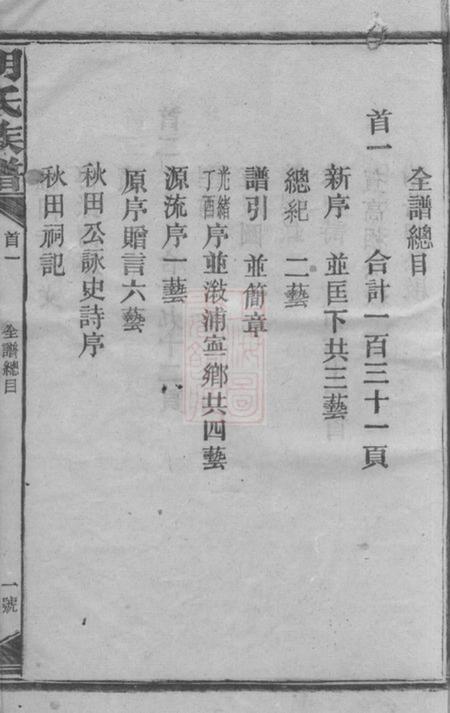 全譜總目
首一 合計一百三十一頁
新序 並匡下共三藝
總紀 二藝
譜引 並簡章
光緒丁酉序並漵浦寧鄉共四藝
源流序一藝
原序贈言六藝
秋田公詠史詩序
秋田祠記
胡氏族譜 首一 全譜總目 一號